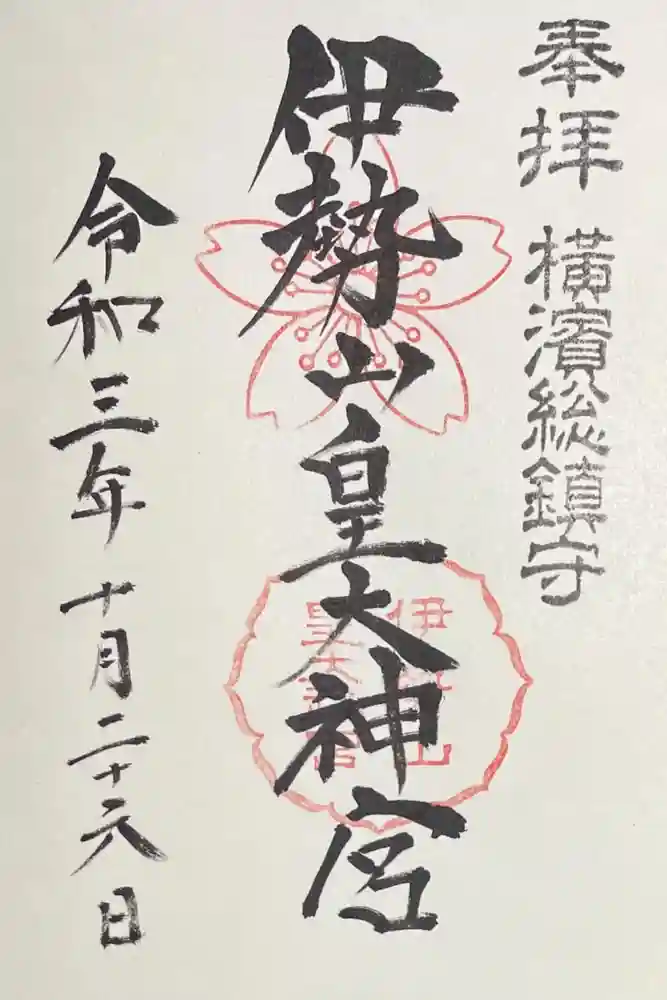 奉拝 橫濱総鎮守
伊勢山皇大神宮
伊勢山
皇大神宮
令和三年十月二十六日